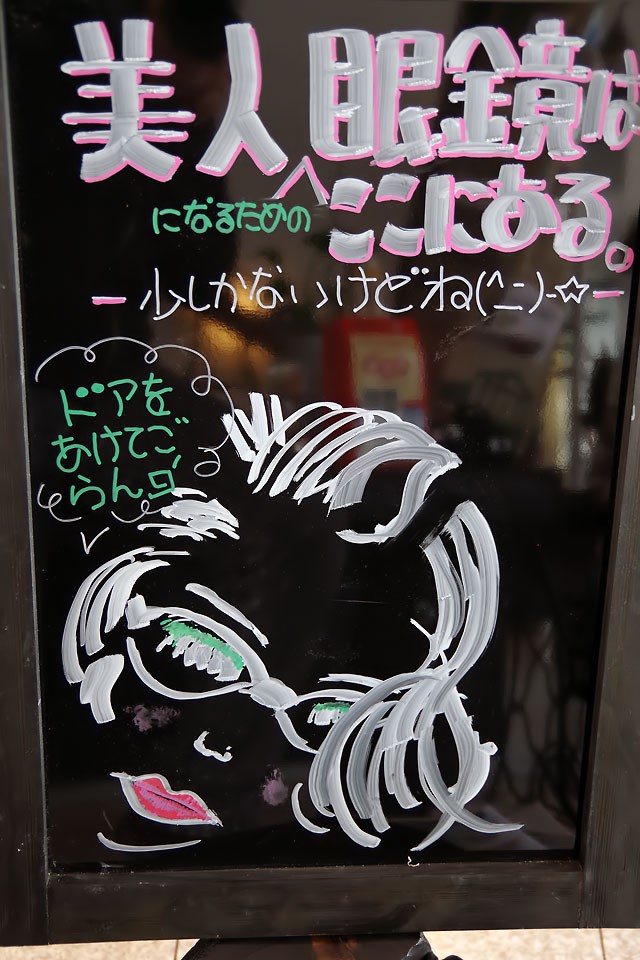 美人眼鏡は
になるための
ここにある。
少しかないけどね(^ー゜)-☆
ドアを
あけてご
らんヨ